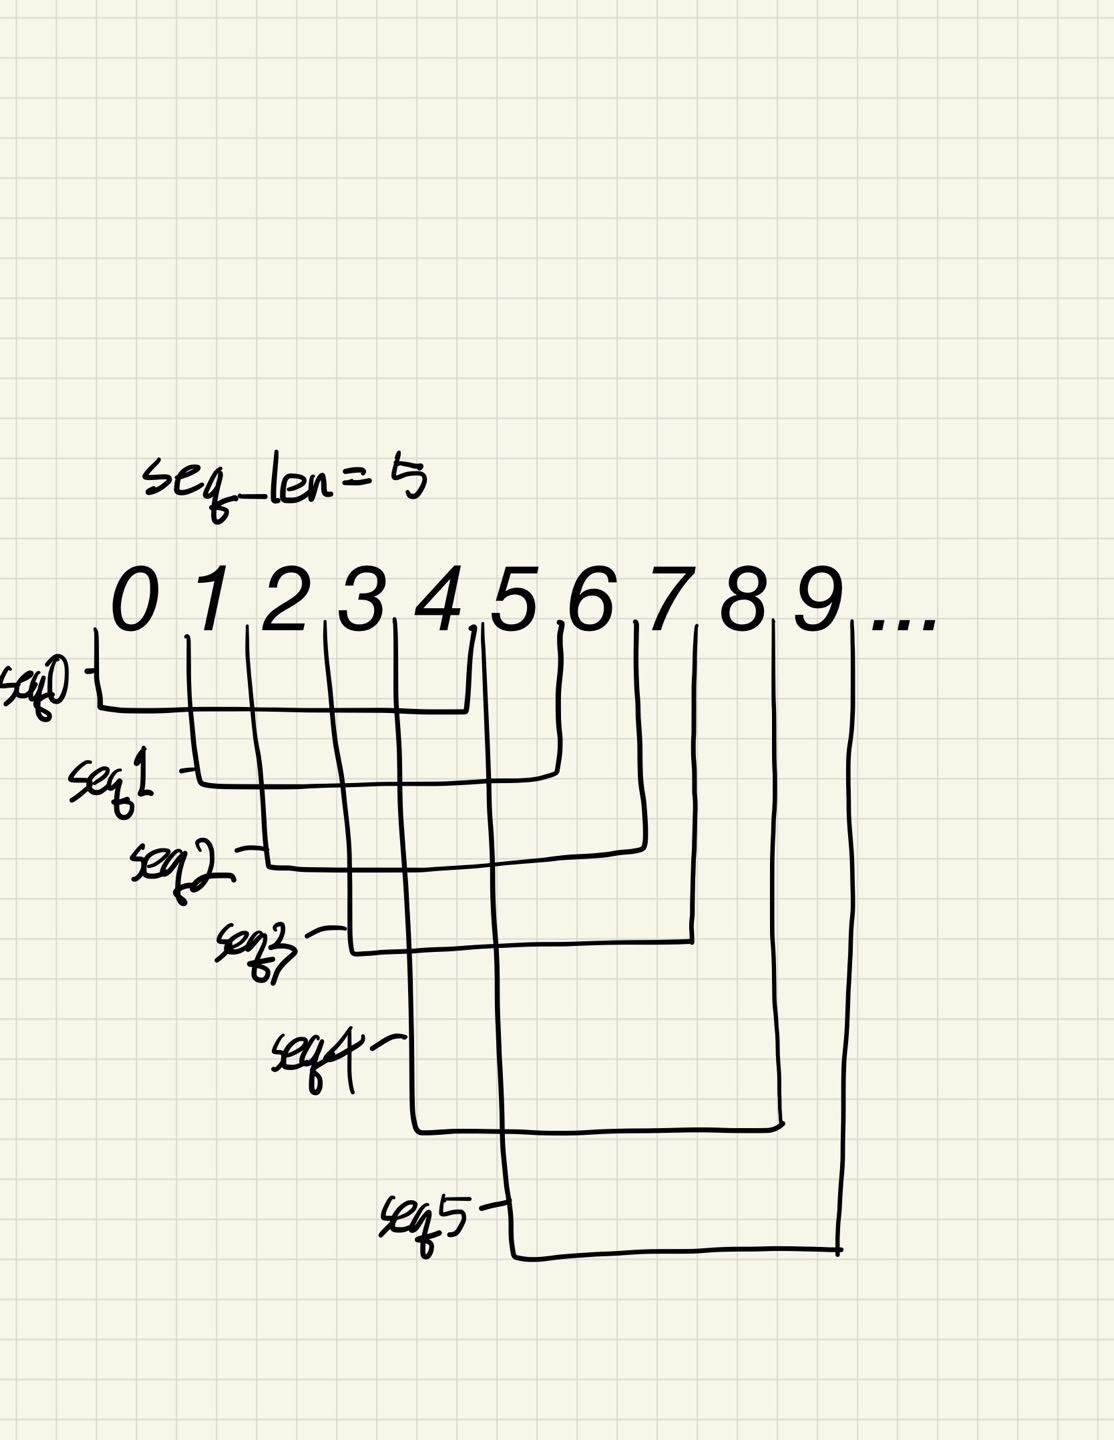 seq_len = 5
0 1 2 3 4 5 6 7 8 9 ...
seq0
seq1
seq2
seq3
seq4
seq5